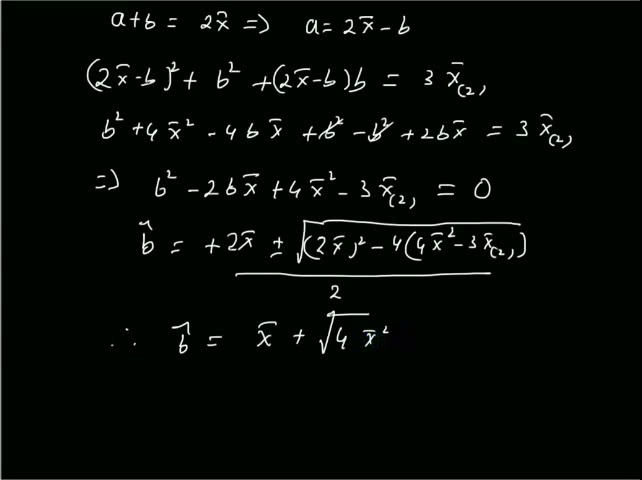 a+b = 2x̄ => a = 2x̄ - b
(2x̄-b)² + b² + (2x̄-b)b = 3 x̄₍₂₎
b² + 4x̄² - 4bx̄ + b² - b² + 2bx̄ = 3 x̄₍₂₎
=> b² - 2bx̄ + 4x̄² - 3x̄₍₂₎ = 0
b̂ = +2x̄ ± √((2x̄)² - 4(4x̄² - 3x̄₍₂₎))
2
∴ b̂ = x̄ + √4 x̄²